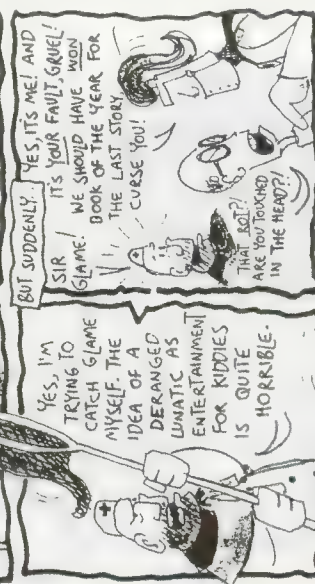 YES, I'M
TRYING TO
CATCH GLAME
MYSELF. THE
IDEA OF A
DERANGED
LUNATIC AS
ENTERTAINMENT
FOR KIDDIES
IS QUITE
HORRIBLE.
BUT SUDDENLY.
SIR
GLAME!
YES, IT'S ME! AND
IT'S YOUR FAULT, GRUEL!
WE SHOULD HAVE WON
BOOK OF THE YEAR FOR
THE LAST STORY.
CURSE YOU!
THAT ROT?!
ARE YOU TOUCHED
IN THE HEAD?!